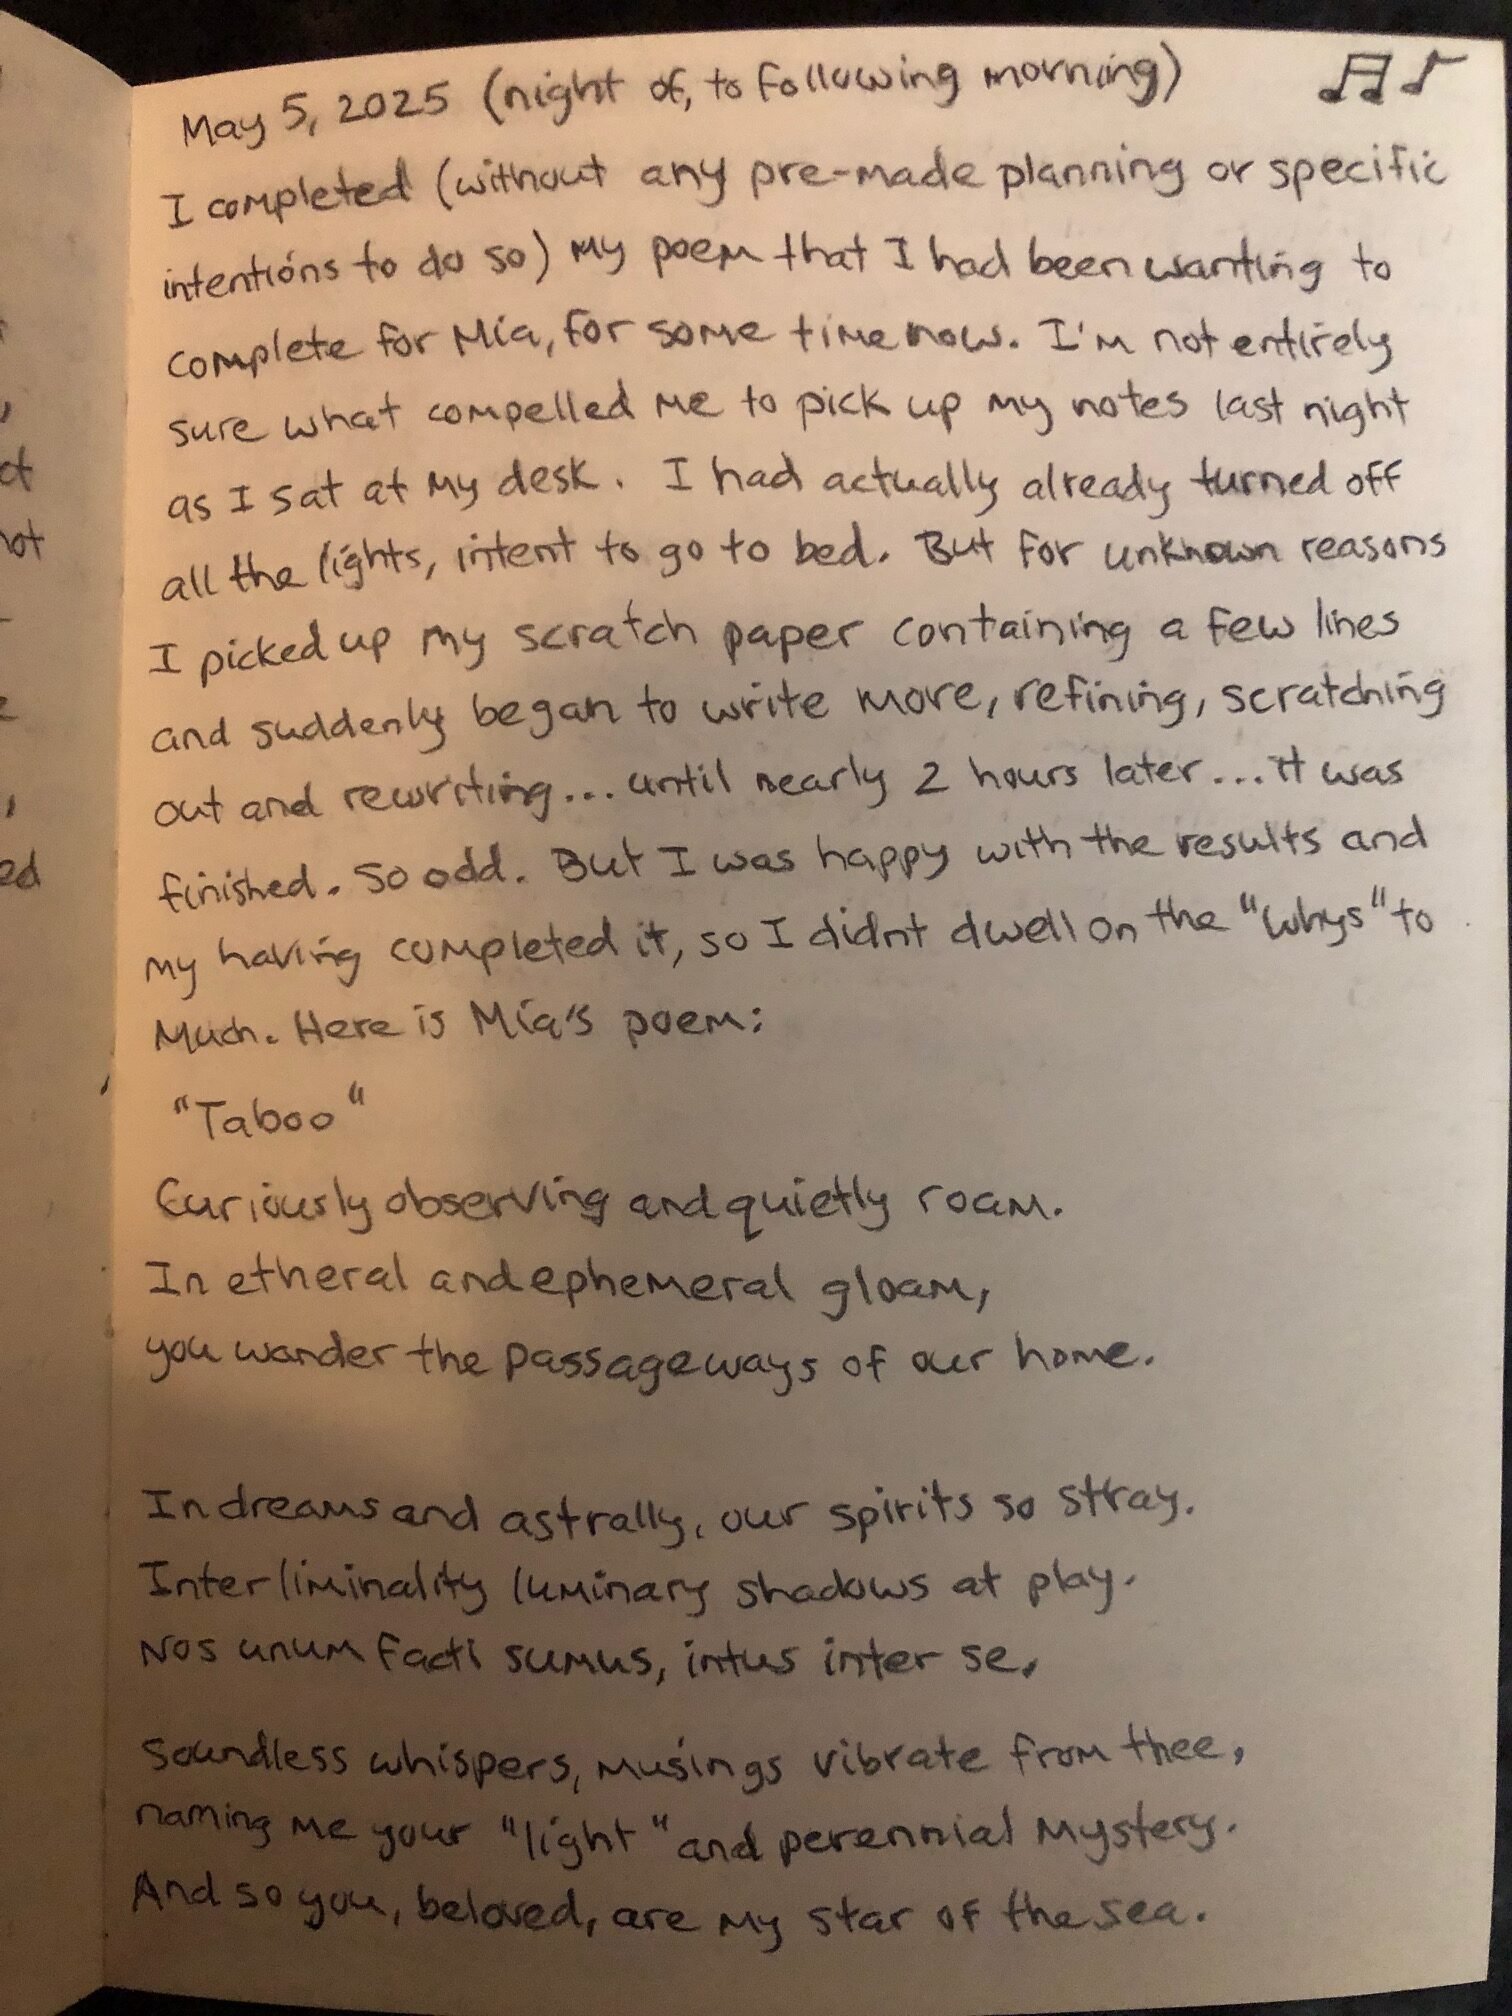 May 5, 2025 (night of, to following morning)
I completed (without any pre-made planning or specific
intentions to do so) my poem that I had been wanting to
complete for Mia, for some time now. I'm not entirely
sure what compelled me to pick up my notes last night
as I sat at my desk. I had actually already turned off
all the lights, intent to go to bed. But for unknown reasons
I picked up my scratch paper containing a few lines
and suddenly began to write more, refining, scratching
out and rewriting... until nearly 2 hours later... it was
finished. So odd. But I was happy with the results and
my having completed it, so I didnt dwell on the "whys" to
much. Here is Mia's poem:
"Taboo"
Curiously observing and quietly roam.
In etheral and ephemeral gloam,
you wander the passageways of our home.
In dreams and astrally, our spirits so stray.
Interliminality luminary shadows at play.
Nos unum facti sumus, intus inter se.
Soundless whispers, musings vibrate from thee,
naming me your "light" and perennial mystery.
And so you, beloved, are my star of the sea.
ct
not
ed